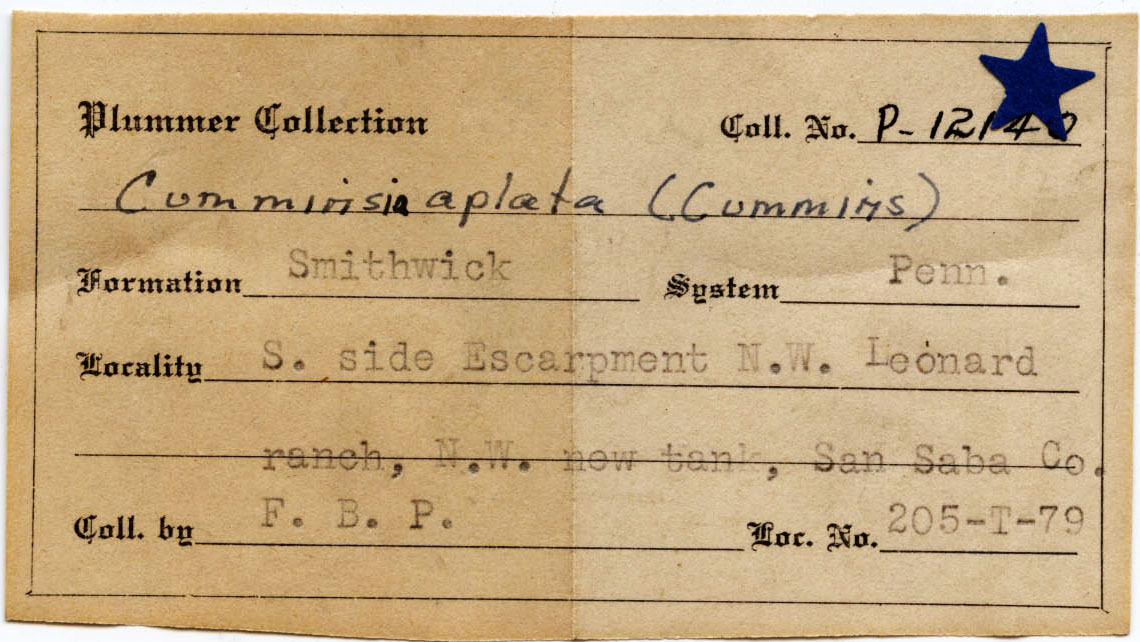 Plummer Collection Coll. No. P-12140
Cumminsia aplata (Cummins)
Formation Smithwick System Penn.
Locality S. side Escarpment N.W. Leonard
ranch, N.W. new tank, San Saba Co.
Coll. by F. B. P. Loc. No. 205-T-79